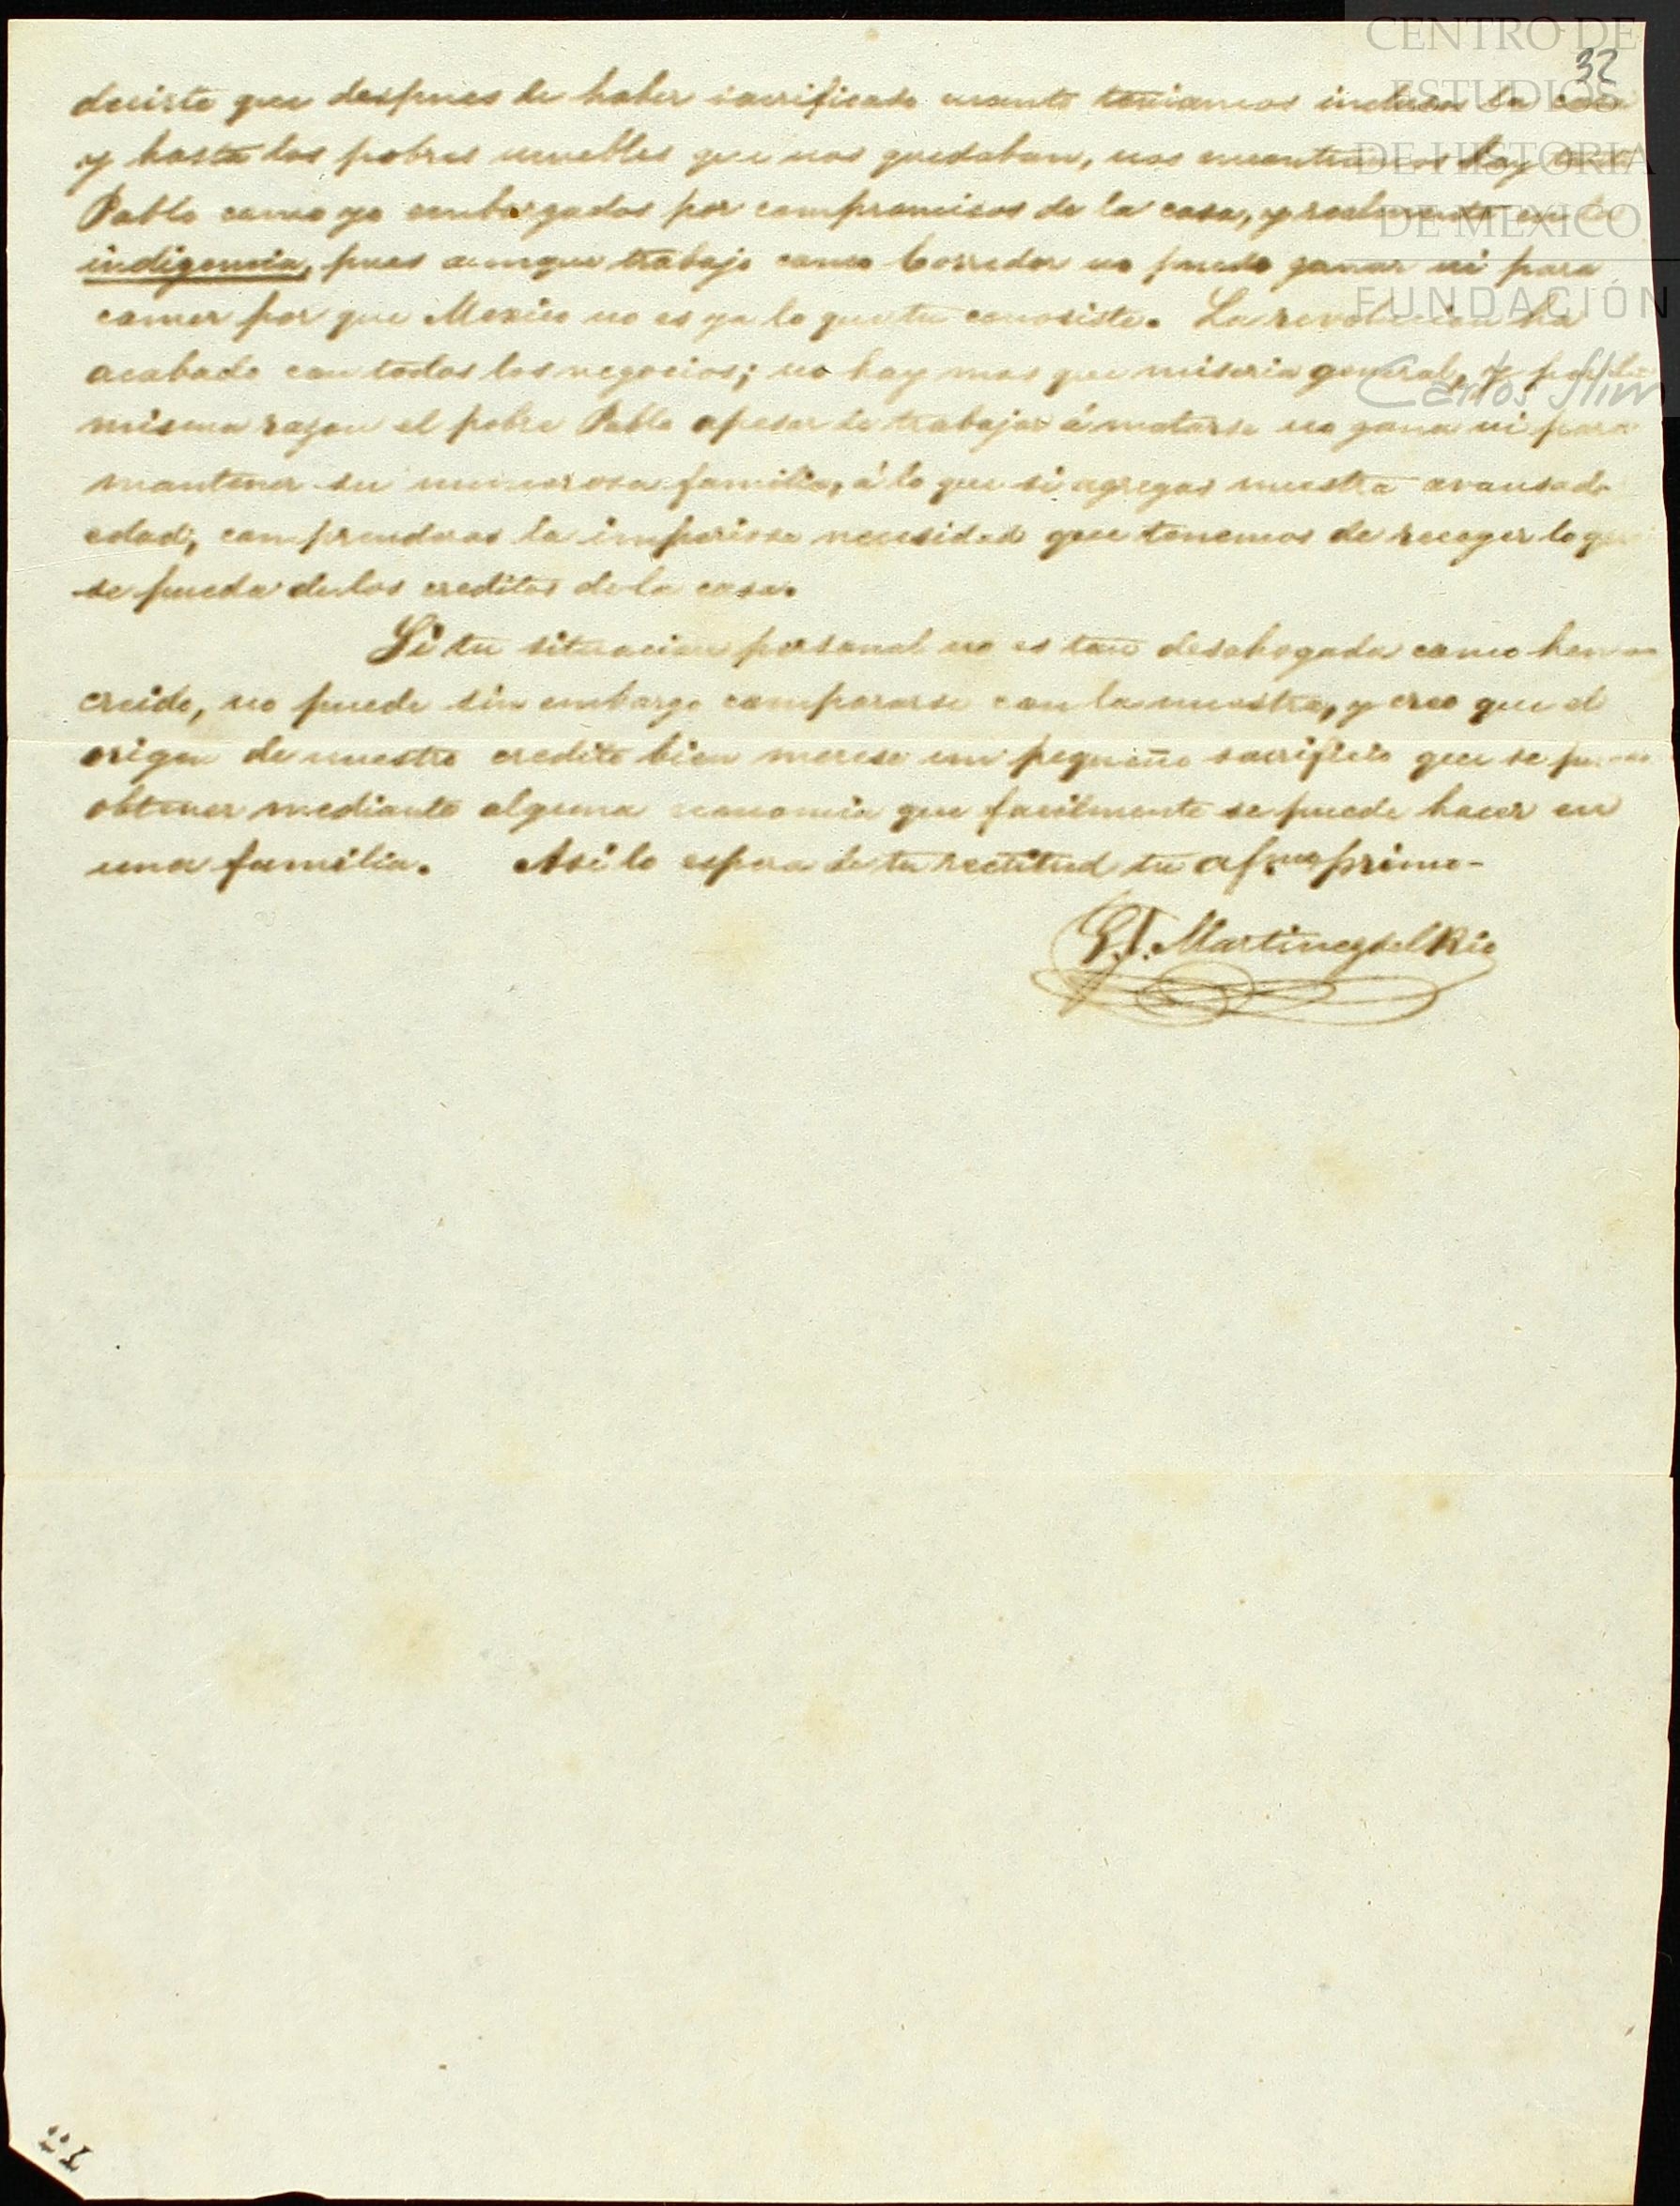 CENTRO DE
ESTUDIOS
DE HISTORIA
DE MEXICO
FUNDACIÓN
Carlos Slim
32
decirte que despues de haber sacrificado cuanto teniamos inclusa la casa
y hasta los pobres muebles que nos quedaban, nos encontramos hoy tanto
Pablo como yo embargados por compromisos de la casa, y realmente en la
indigencia, pues aunque trabajo como Corredor no puedo ganar ni para
comer por que Mexico no es ya lo que tu conosiste. La revolucion ha
acabado con todos los negocios; no hay mas que miseria general, y por la
misma razon el pobre Pablo apesar de trabajar á matarse no gana ni para
mantener su numerosa familia, á lo que si agregas nuestra avansada
edad, comprenderas la imperiosa necesidad que tenemos de recoger lo que
se pueda de los creditos de la casa.
Si tu situacion personal no es tan desahogada como hemos
creido, no puede sin embargo compararse con la nuestra, y creo que el
origen de nuestro credito bien merese un pequeño sacrificio que se puede
obtener mediante alguna economia que facilmente se puede hacer en
una familia. Asi lo espera de tu rectitud tu af.mo primo-
G. J. Martinez del Rio